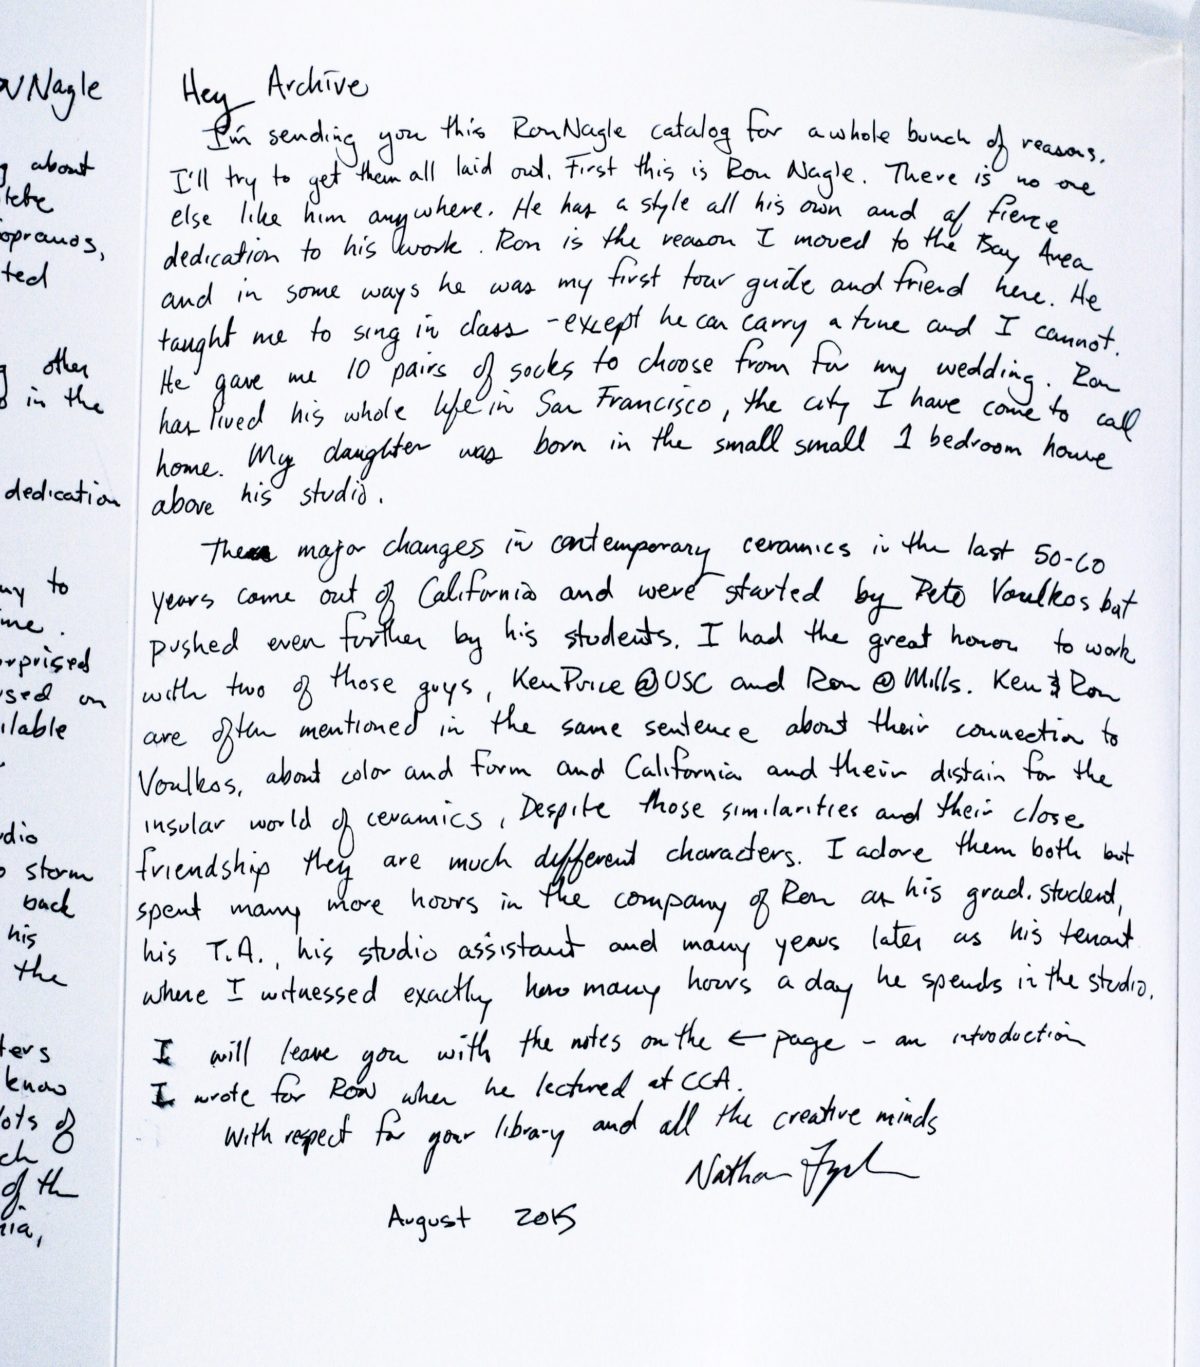 N Nagle
g about
opranos,
ted
g other
o in the
dedication
to
me.
rprised
sed on
ilable
dio
o storm
back
his
the
ters
know
lots of
ch
of the
nia,
Hey Archive
I'm sending you this Ron Nagle catalog for a whole bunch of reasons.
I'll try to get them all laid out. First this is Ron Nagle. There is no one
else like him anywhere. He has a style all his own and of fierce
dedication to his work. Ron is the reason I moved to the Bay Area
and in some ways he was my first tour guide and friend here. He
taught me to sing in class - except he can carry a tune and I cannot.
He gave me 10 pairs of socks to choose from for my wedding. Ron
has lived his whole life in San Francisco, the city I have come to call
home. My daughter was born in the small small 1 bedroom house
above his studio.
The major changes in contemporary ceramics in the last 50-60
years come out of California and were started by Pete Voulkos but
pushed even further by his students. I had the great honor to work
with two of those guys, Ken Price @ USC and Ron @ Mills. Ken & Ron
are often mentioned in the same sentence about their connection to
Voulkos, about color and form and California and their distain for the
insular world of ceramics. Despite those similarities and their close
friendship they are much different characters. I adore them both but
spent many more hours in the company of Ron as his grad. student,
his T.A., his studio assistant and many years later as his tenant
where I witnessed exactly how many hours a day he spends in the studio.
I will leave you with the notes on the ← page - an introduction
I wrote for Ron when he lectured at CCA.
With respect for your library and all the creative minds
Nathan
August 2015